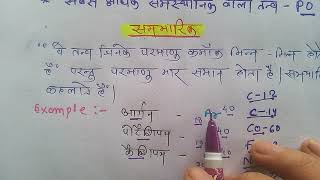 * सबसे अधिक समस्थानिक वाला तत्व - PO
समभारिक
"वे तत्व जिनके परमाणु क्रमांक भिन्न - भिन्न होते
हैं परन्तु परमाणु भार समान होता है।
कहलाते हैं।
Example :- आर्गन - 18 Ar 40
पोटैशियम - 40
कैल्शियम - 40
C-12
C-14
CO-60